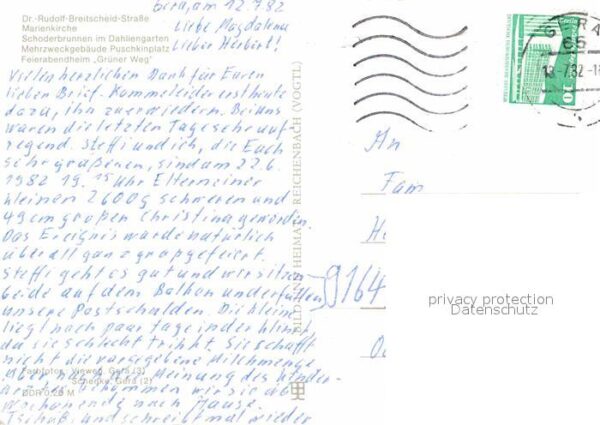 Dr.-Rudolf-Breitscheid-Straße
Marienkirche
Schoderbrunnen im Dahliengarten
Mehrzweckgebäude Puschkinplatz
Feierabendheim „Grüner Weg"
Gera, am 12.7.82
Liebe Magdalena
Lieber Herbert!
Vielen herzlichen Dank für Euren
lieben Brief. Komme leider erst heute
dazu, ihn zu erwiedern. Bei uns
waren die letzten Tage sehr auf-
regend. Steffi und ich, die Euch
sehr grüßen, sind am 22.6.
1982 19.15 Uhr Eltern einer
kleinen 2600g schweren und
49cm großen Christina geworden.
Das Ereignis wurde natürlich
überall ganz groß gefeiert.
Steffi geht es gut und wir sitzen
beide auf dem Balkon und erfüllen
unsere Postschulden. Die kleine
liegt noch paar Tage in der Klinik
da sie schlecht trinkt. Sie schafft
nicht die vorgegebene Milchmenge
Aber nach der Meinung des Kinder-
arztes bekommen wir sie ab
Wochenende nach Hause.
Tschüß und schreibt mal wieder
Farbfotos: Vieweg, Gera (3)
Schenke, Gera (2)
DDR 0,20 M
BILD HEIMAT REICHENBACH (VOGTL)
GERA
65
13-7.82-1
10
An
Fam
H
99164
O
privacy protection
Datenschutz